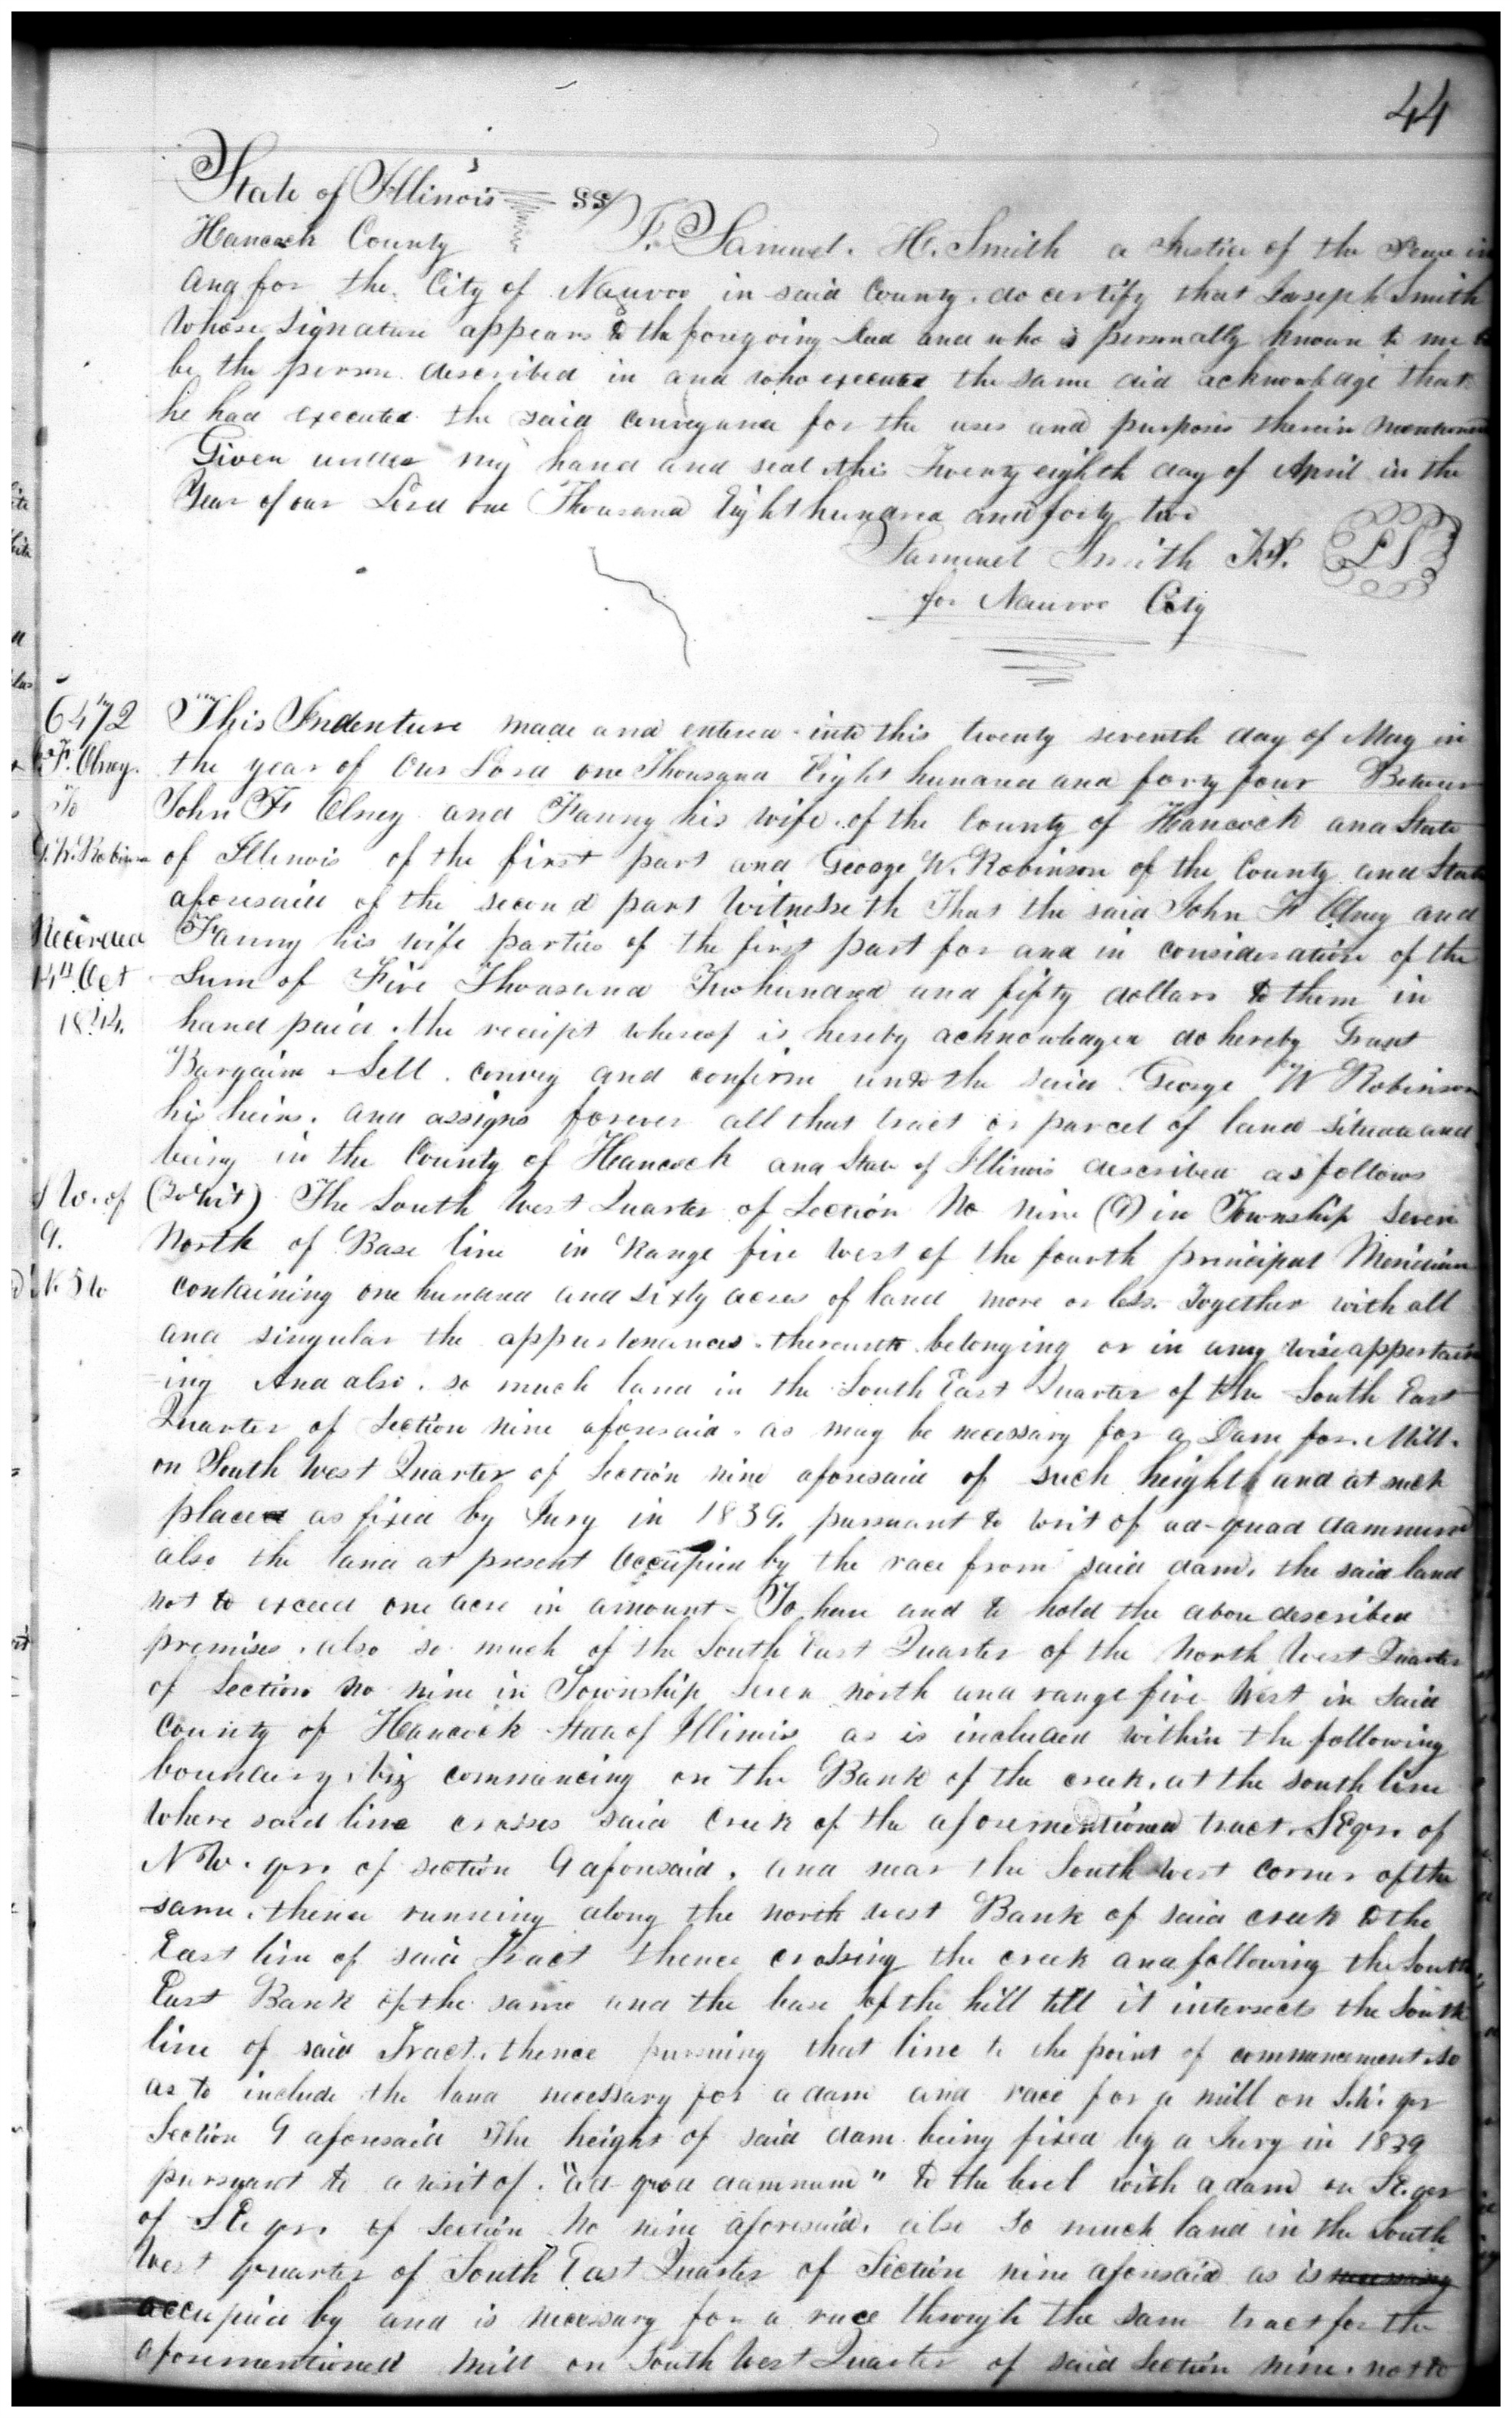 44
State of Illinois ss
Hancock County I. Samuel. H. Smith a Justice of the Peace in
and for the City of Nauvoo in said County. do certify that Joseph Smith
whose signature appears to the foregoing deed and who is personally known to me to
be the person described in and who executed the same did acknowledge that
he had executed the said conveyance for the uses and purposes therein mentioned
Given under my hand and seal this Twenty eighth day of April in the
Year of our Lord one Thousand Eight hundred and forty two
Samuel Smith J.P. LS
for Nauvoo City
6472 This Indenture made and entered into this twenty seventh day of May in
F. Olney. the year of Our Lord one Thousand Eight hundred and forty four Between
To John F Olney and Fanny his wife. of the County of Hancock and State
G. W. Robinson of Illinois of the first part and George W. Robinson of the County and State
aforesaid of the second part Witnesseth That the said John F Olney and
Recorded Fanny his wife parties of the first part for and in consideration of the
14th Oct Sum of Five Thousand Two hundred and fifty dollars to them in
1844. hand paid. the receipt whereof is hereby acknowledged do hereby Grant
Bargain Sell. convey and confirm unto the said George W Robinson
his heirs. and assigns forever all that tract or parcel of land situate and
being in the County of Hancock and State of Illinois described as follows
S W. of (To Wit) The South West Quarter of Section No nine (9) in Township Seven
9. North of Base line in Range five West of the fourth principal Meridian
N. 5 W containing one hundred and sixty acres of land more or less. Together with all
and singular the appurtenances. thereunto belonging or in any wise appertain
ing And also. so much land in the South East Quarter of the South East
Quarter of Section nine aforesaid. as may be necessary for a Dam for Mill.
on South West Quarter of Section nine aforesaid of such height and at such
place as fixed by Jury in 1839. pursuant to writ of ad-quad damnum
also the land at present Occupied by the race from said dam. the said land
not to exceed one acre in amount - To have and to hold the above described
premises. also so much of the South East Quarter of the North West Quarter
of Section No nine in Township Seven north and range five West in said
County of Hancock State of Illinois as is included within the following
boundary. viz commancing on the Bank of the creek. at the south line
where said line crosses said Creek of the aforementioned tract. SE qr. of
N W. qr. of section 9 aforesaid. and near the South West corner of the
same. thence running along the north west Bank of said creek to the
East line of said Tract thence crossing the creek and following the South
East Bank of the same and the base of the hill till it intersects the South
line of said Tract. thence pursuing that line to the point of commencement so
as to include the land necessary for a dam and race for a mill on S.W. qr
Section 9 aforesaid The height of said dam being fixed by a Jury in 1839
pursuant to a writ of. "ad quod damnum" to the level with a dam on SE. qr
of S E qr. of Section No nine aforesaid. also so much land in the South
West quarter of South East Quarter of Section nine aforesaid as is necessary
occupied by and is necessary for a race through the same tract for the
aforementioned Mill on South West Quarter of said Section nine. not to